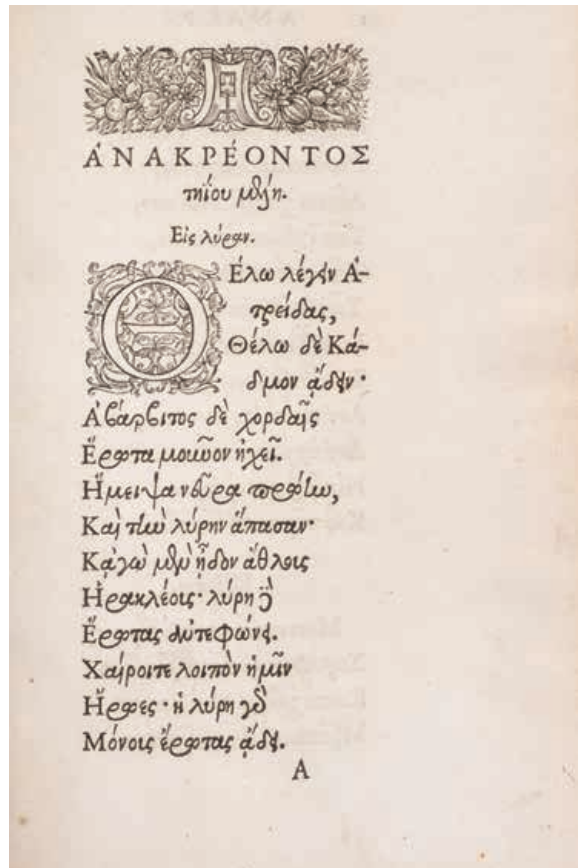 ἈΝΑΚΡΈΟΝΤΟΣ
τηΐου μέλη.
Εἰς λύραν.
ΘΈλω λέγειν Ἀ-
τρείδας,
Θέλω δὲ Κά-
δμον ᾄδειν·
Ἁ βάρβιτος δὲ χορδαῖς
Ἔρωτα μοῦνον ἠχεῖ.
Ἤμειψα νεῦρα πρώίω,
Καὶ τὴν λύρην ἅπασαν·
Κᾀγὼ μὲν ᾖδον ἄθλοις
Ἡρακλέοις· λύρη δὲ
Ἔρωτας ἀντεφώνει.
Χαίροιτε λοιπὸν ἡμῖν
Ἥρωες· ἡ λύρη γὰρ
Μόνοις ἔρωτας ᾄδει.
A